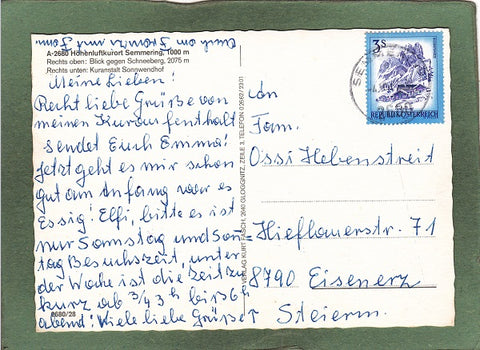 auch an Franzi und Fam.
A-2680 Höhenluftkurort Semmering, 1000 m
Rechts oben: Blick gegen Schneeberg, 2075 m
Rechts unten: Kuranstalt Sonnwendhof
Meine Lieben!
Recht liebe Grüße von
meinen Kuraufenthalt
sendet Euch Emma!
Jetzt geht es mir schon
gut am Anfang war es
Essig! Elfi, bitte es ist
nur Samstag und Sonn
tag Besuchszeit, unter
der Woche ist die Zeit zu
kurz ab 3/4 3h bis 6h
abend! Viele liebe Grüße
2680/28
VERLAG KURT FASCH, 2640 GLOGGNITZ, ZEILE 3, TELEFON 02662/2301
3S
REPUBLIK ÖSTERREICH
2680
An
Fam.
Ossi Hebenstreit
Hieflauerstr. 71
8790 Eisenerz
Steierm.